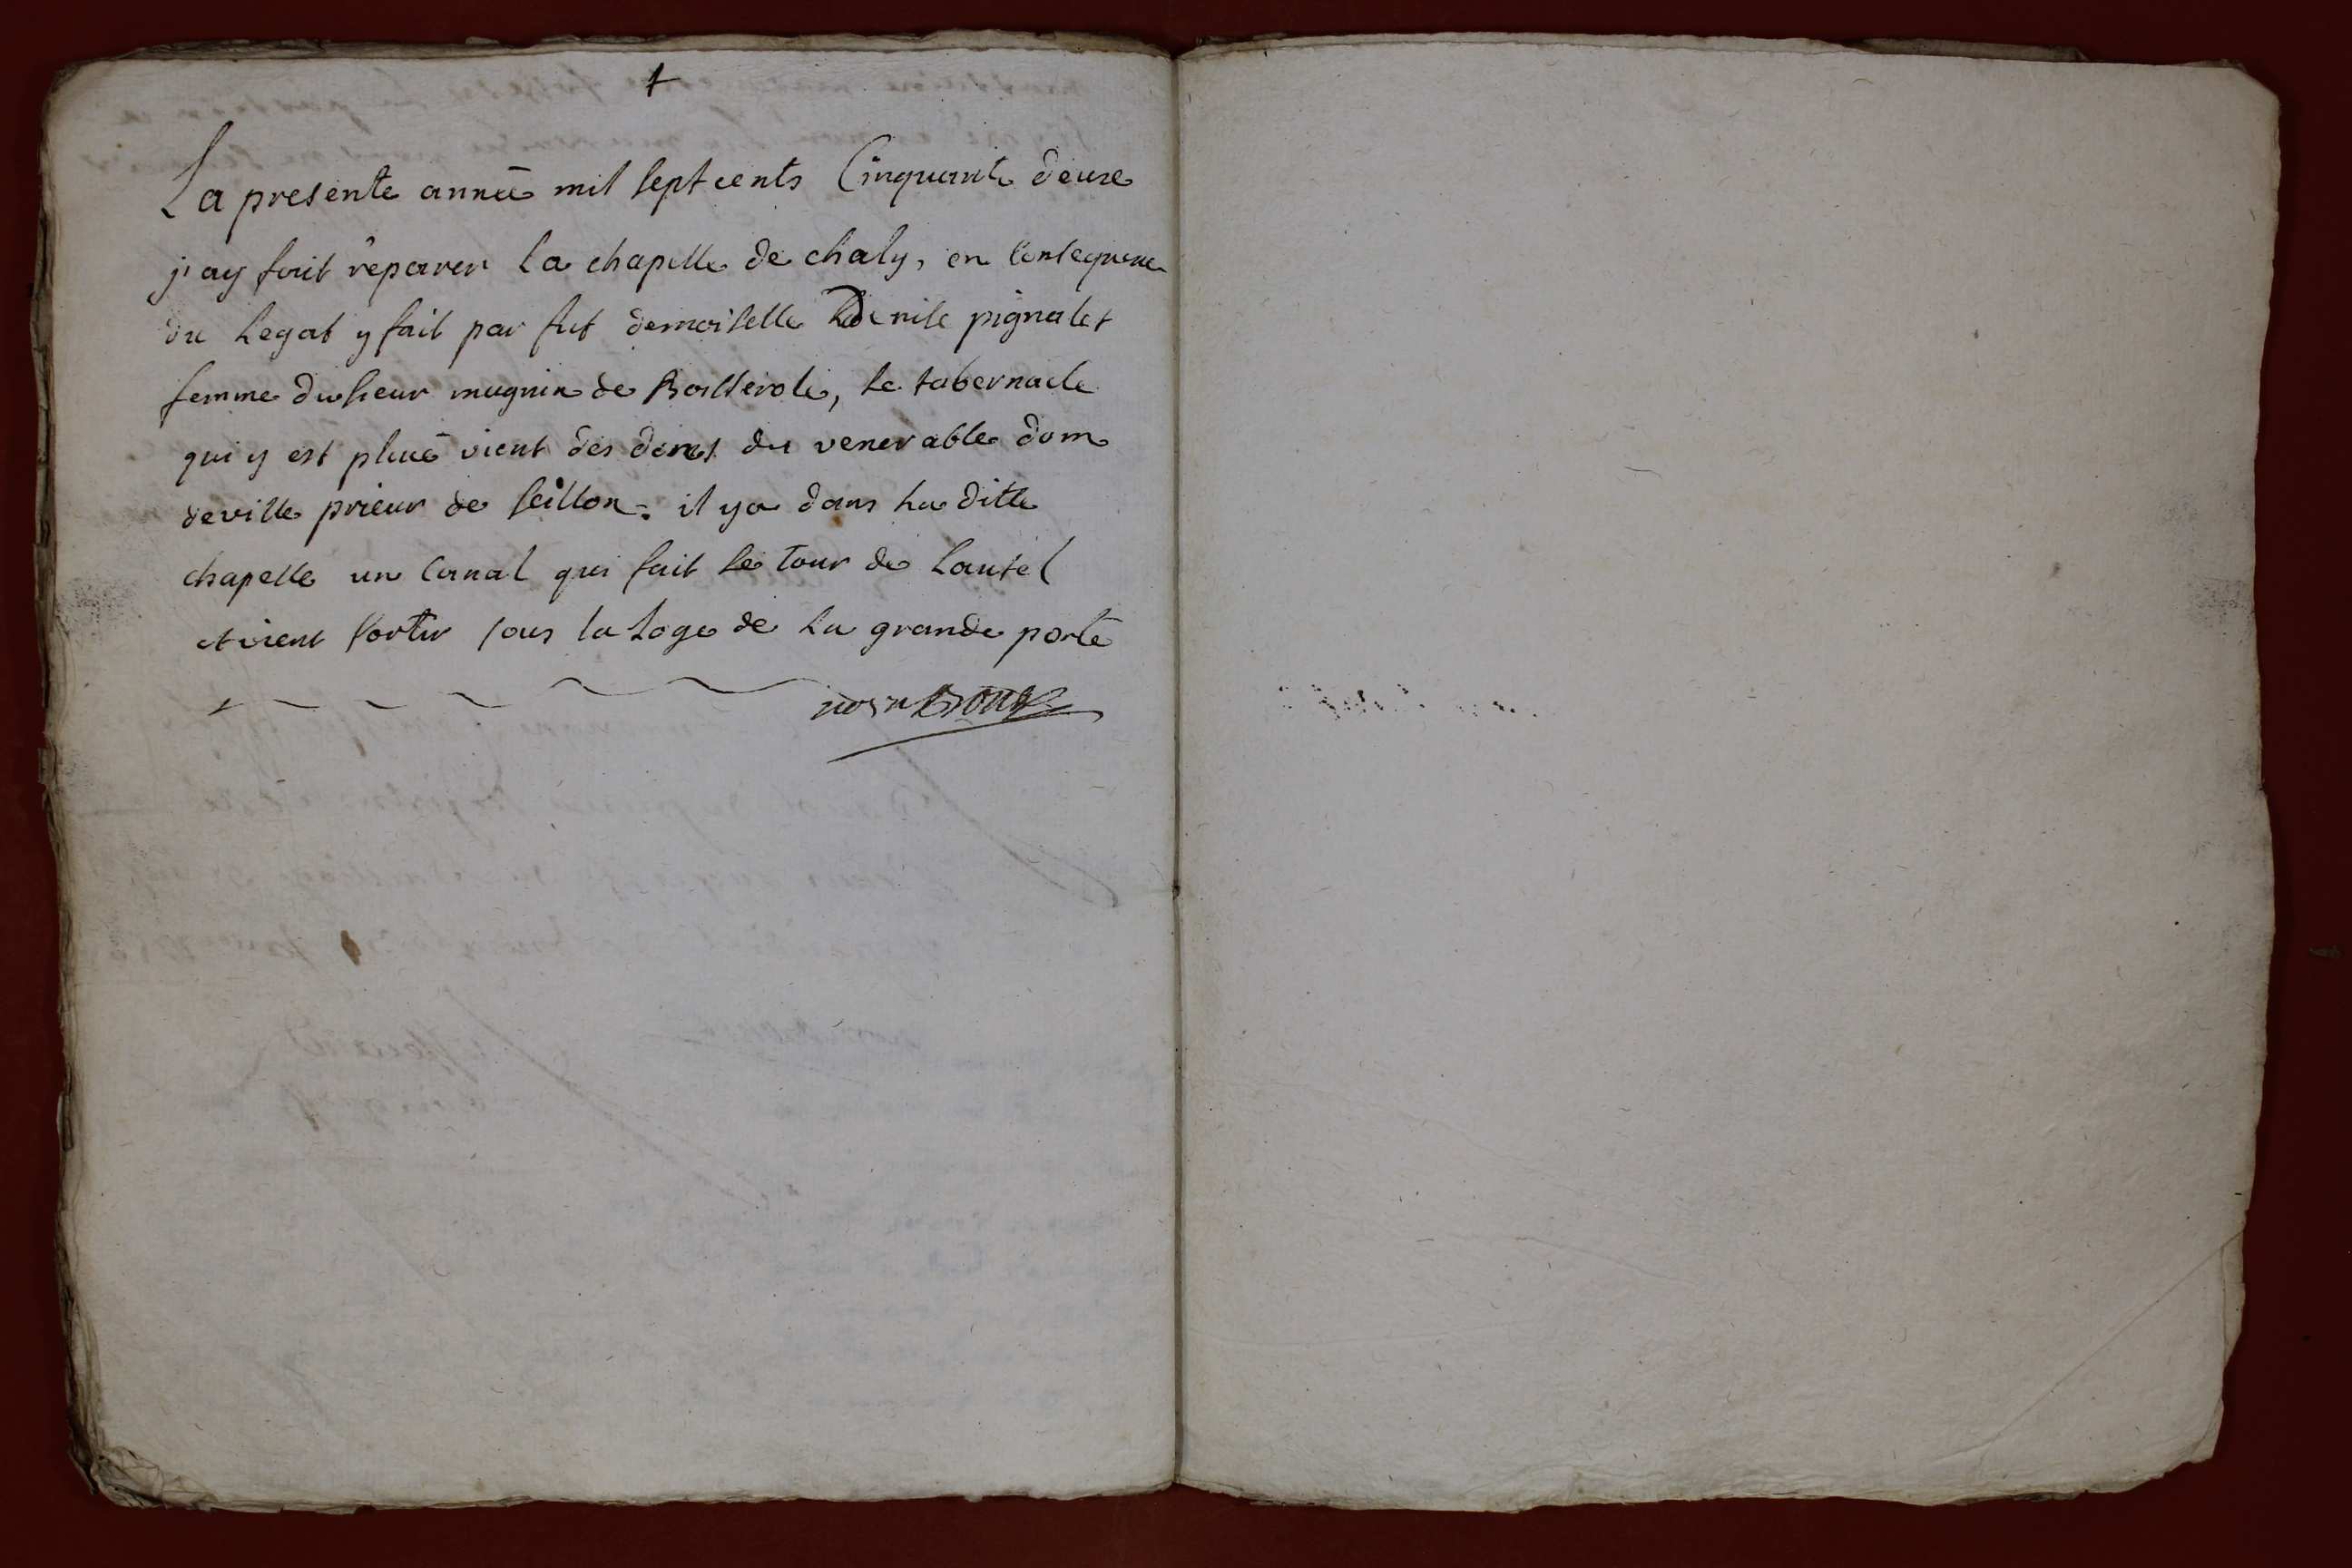 La presente année mil sept cents Cinquante deuxe
j'ay fait réparer la chapelle de chaly, en consequence
du Legat y fait par fut demoiselle Denise pignalet
femme du sieur mugnin de Boisserole, le tabernacle
qui y est placé vient des dons du venerable dom
deville prieur de seillon. il y a dans la ditte
chapelle un Canal qui fait le tour de Lautel
et vient sortir sous la Loge de la grande porte